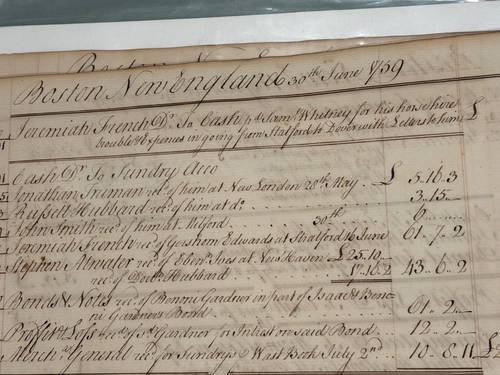 Boston New England 30th June 1759
Jeremiah French Dr. To Cash pd Saml Whitney for his horse hire £
trouble & Expences in going from Stratford to Dover with Letters to him
Cash Dr. To Sundry Acco
Jonathan Truman recd of him at New London 28th May .. £ 5.16.3
Russell Hubbard recd of him at do. 3.15..
John Smith recd of him at Milford 30th 6
Jeremiah French recd of Gershom Edwards at Stratford 16 June 61..7..2
Stephen Atwater recd of Ebenr Ives at New Haven £25.10..
recd of Doctr Hubbard 17.16.2 43..6..2
Bonds & Notes recd of Benoni Gardner in part of Isaac & Beno=
ni Gardners Bond 61..2..
Proffit & Loss recd of sd Gardner for Intrest on said Bond 12..2..
Merchze General recd for Sundrys Wast Book July 2nd 10..8..11 £2